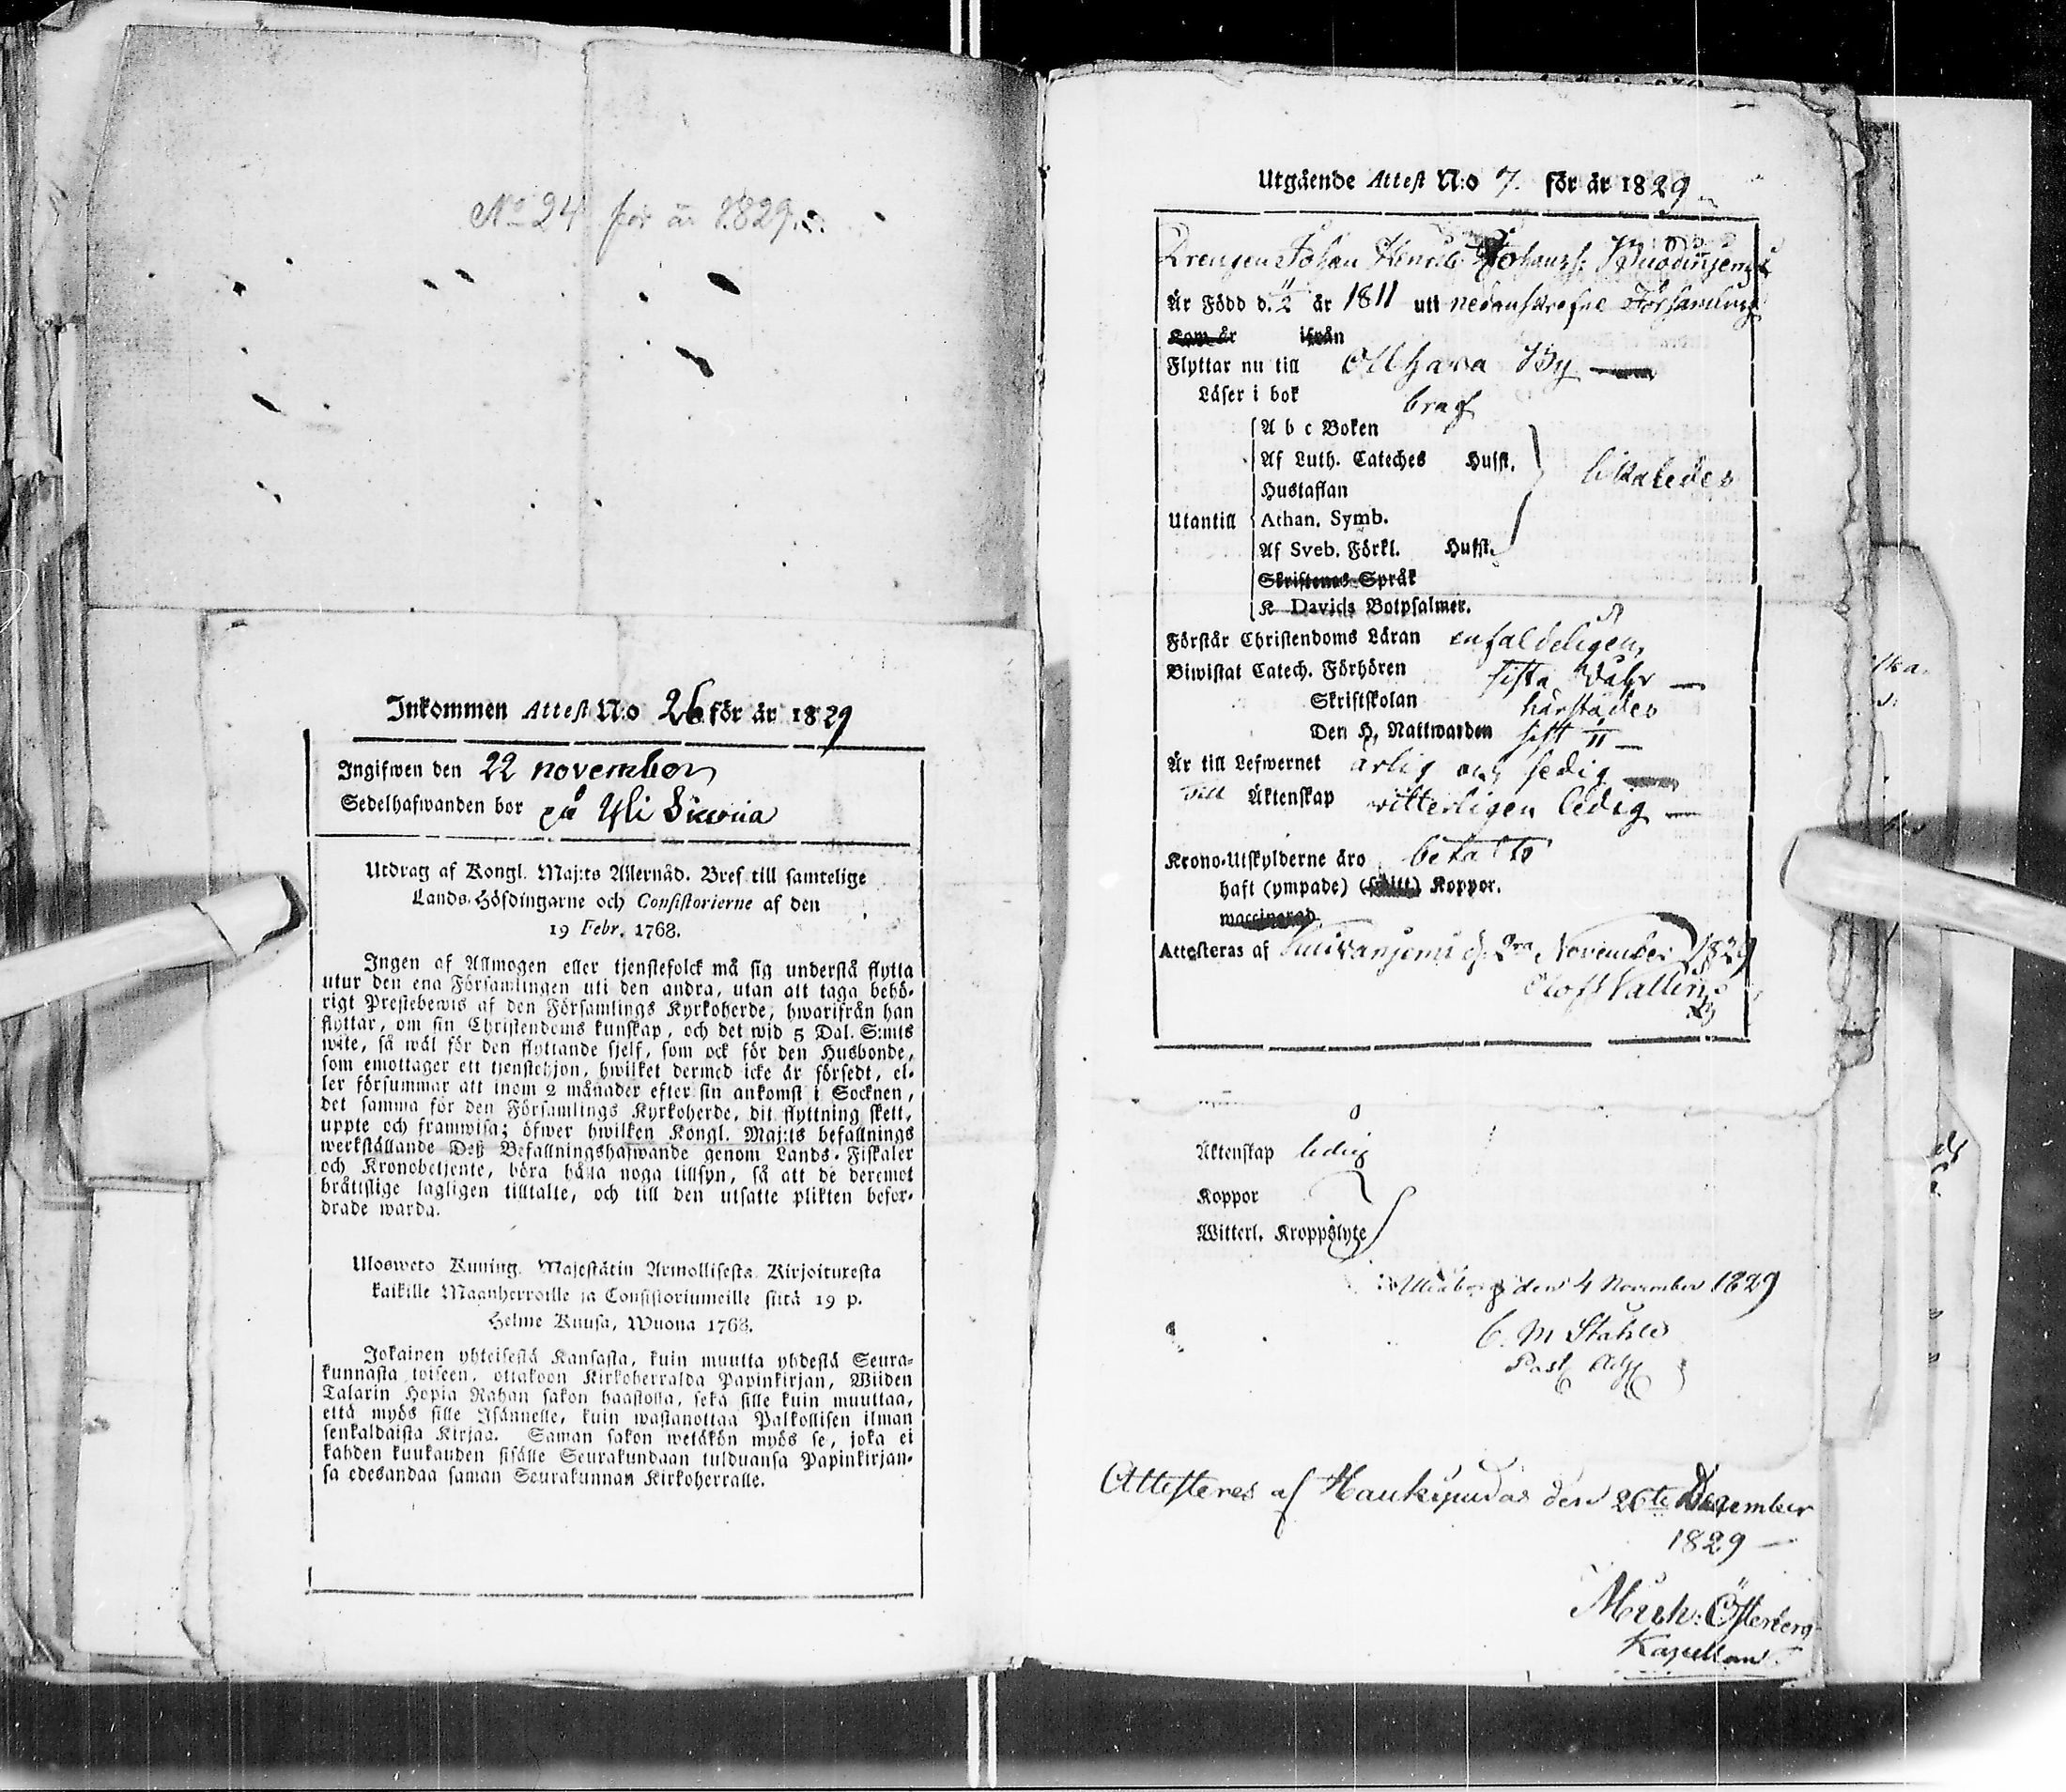 No 24 för år 1829.
Inkommen Attest N:o 26 för år 1829
Ingifwen den 22 november
Sedelhafwanden bor på Yli
Utdrag af Kongl. Maj:ts Allernåd. Bref till samtelige
Lands-Höfdingarne och Consistorierne af den
19 Febr. 1768.
Ingen af Allmogen eller tjenstefolck må sig understå flytta
utur den ena Församlingen uti den andra, utan att taga behö-
rigt Prestebewis af den Församlings Kyrkoherde, hwarifrån han
flyttar, om sin Christendoms kunskap, och det wid 5 Dal. S:mts
wite, så wäl för den flyttande sjelf, som ock för den Husbonde,
som emottager ett tjenstehjon, hwilket dermed icke är försedt, el-
ler försummar att inom 2 månader efter sin ankomst i Socknen,
det samma för den Församlings Kyrkoherde, dit flyttning skett,
uppte och framwisa; öfwer hwilken Kongl. Maj:ts befallnings
werkställande Deß Befallningshafwande genom Lands-Fiskaler
och Kronobetjente, böra hålla noga tillsyn, så att de deremot
bråttslige lagligen tilltalte, och till den utsatte plikten befor-
drade warda.
Ulosweto Kuning. Majestätin Armollisesta Kirjoituxesta
kaikille Maanherroille ja Consistoriumeille siitä 19 p.
Helme Kuusa, Wuona 1768.
Jokainen yhteisestä Kansasta, kuin muutta yhdestä Seura-
kunnasta toiseen, ottakoon Kirkoherralda Papinkirjan, Wiiden
Talarin Hopia Rahan sakon haastolla, sekä sille kuin muuttaa,
että myös sille Isännelle, kuin wastanottaa Palkollisen ilman
senkaldaista Kirjaa. Saman sakon wetäkön myös se, joka ei
kahden kuukauden sisälle Seurakundaan tulduansa Papinkirjan-
sa edesandaa saman Seurakunnan Kirkoherralle.
Utgående Attest N:o 7. för år 1829
Drengen Johan Henric Johanss:
Är Född d. 11/2 år 1811 uti nedanskrefne Församling
Kom år ifrån
Flyttar nu till Ollhava By
Läser i bok braf
A b c Boken
Af Luth. Cateches Hufst.
Hustaflan likaledes
Utantill Athan. Symb.
Af Sveb. Förkl. Hufst.
Skriftenes Språk
K Davids Botpsalmer.
Förstår Christendoms Läran enfaldeligen,
Biwistat Catech. Förhören sista
Skriftskolan härstädes
Den H. Nattwarden sist
Är till Lefwernet ärlig och sedig
Till Äktenskap witterligen ledig
Krono-Utskylderne äro betalte
haft (ympade) Koppor.
Attesteras af Kuivaniemi d. 2dra November 1829
Olof Wallin
Äktenskap ledig
Koppor
Witterl. Kroppslyte
Uleåborg den 4 November 1829
C. M Ståhle
Past. Adj
Attesteres af Haukipudas den 26te Dezember
1829
Mich: Österberg
Kapellan